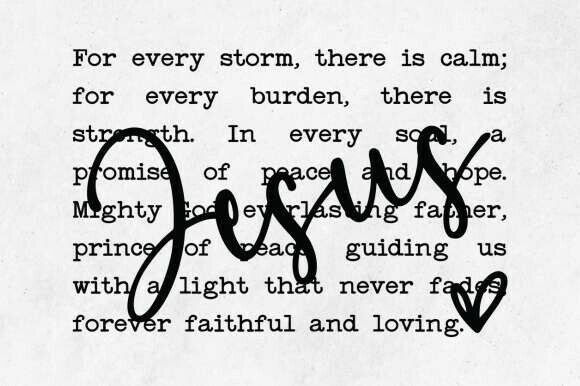 For every storm, there is calm;
for every burden, there is
strength. In every soul, a
promise of peace and hope.
Mighty God, everlasting father,
prince of peace guiding us
with a light that never fades,
forever faithful and loving.
Jesus